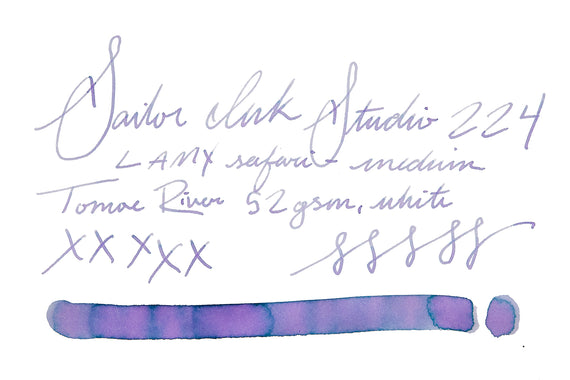 Sailor Ink Studio 224
LAMY safari - medium
Tomoe River 52gsm, white
XXXXX